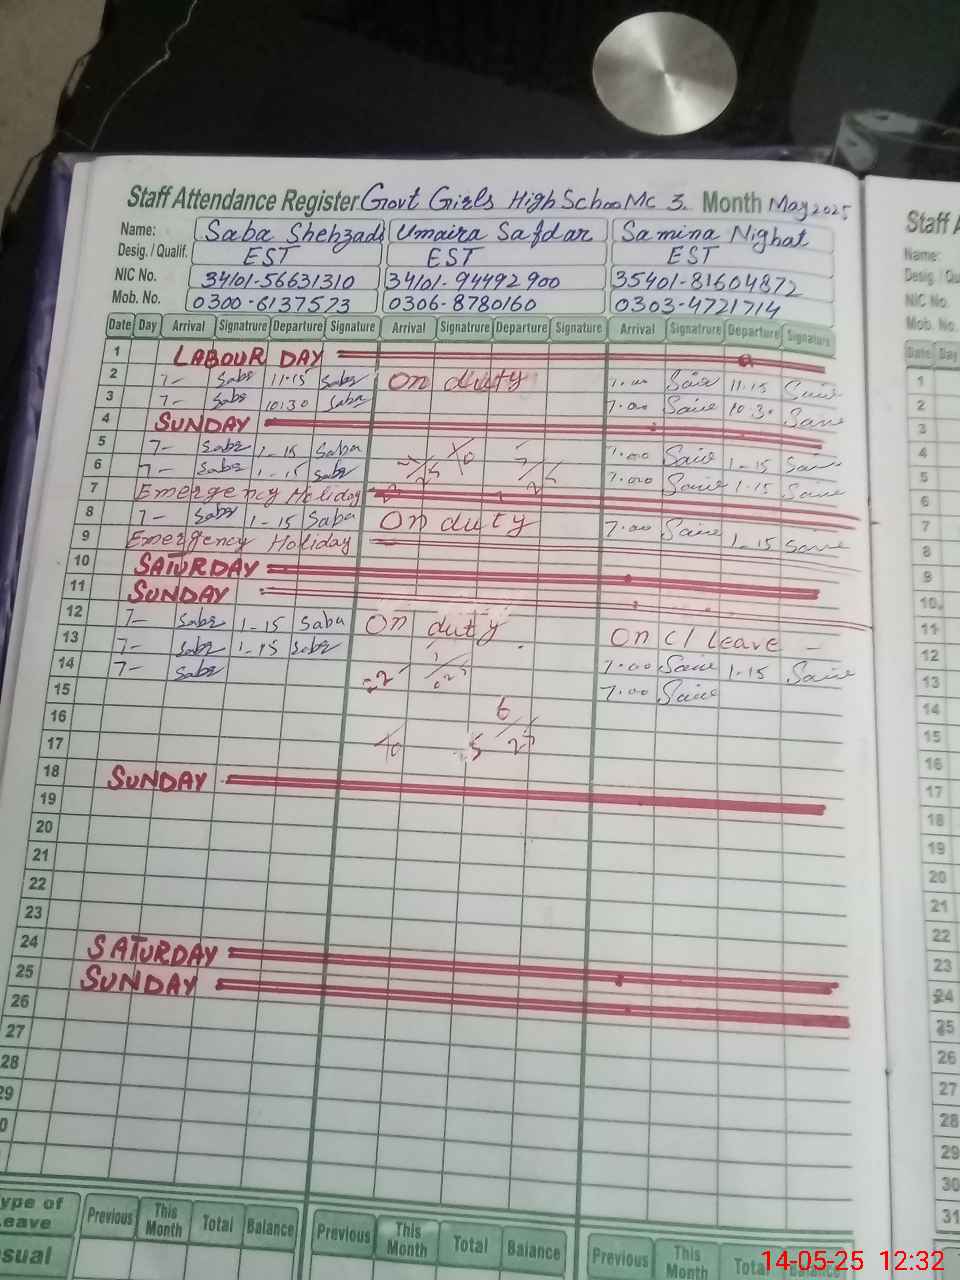 Staff Attendance Register Govt Girls High School Mc 3. Month May 2025
Name: Saba Shehzadi Umaira Safdar Samina Nighat
Desig. / Qualif. EST EST EST
NIC No. 34101-56631310 34101-94492900 35401-81604872
Mob. No. 0300-6137573 0306-8780160 0303-4721714
Date Day Arrival Signatrure Departure Signature Arrival Signatrure Departure Signature Arrival Signatrure Departure Signature
1 LABOUR DAY
2 7- Saba 11.15 Saba On duty 7.00 11.15
3 7- Saba 10.30 Saba 7.00 10.30
4 SUNDAY
5 7- Saba 1-15 Saba 7.00 1-15
6 7- Saba 1-15 Saba 7.00 1-15
7 Emergency Holiday
8 7- Saba 1-15 Saba On duty 7.00 1-15
9 Emergency Holiday
10 SATURDAY
11 SUNDAY
12 7- Saba 1-15 Saba On duty On C/ Leave -
13 7- Saba 1-15 Saba 7.00 1-15
14 7- Saba 7.00
15
16 6
17
18 SUNDAY
19
20
21
22
23
24 SATURDAY
25 SUNDAY
26
27
28
29
0
ype of
eave
Previous This Month Total Balance Previous This Month Total Balance Previous This Month Total
sual
Staff A
Name:
Desig / Qu
NIC No.
Mob. No.
Date Day
1
2
3
4
5
6
7
8
9
10
11
12
13
14
15
16
17
18
19
20
21
22
23
24
25
26
27
28
29
30
31
14-05-25 12:32